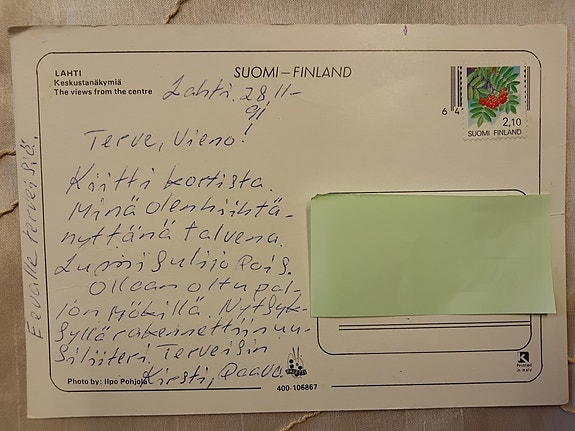 LAHTI
Keskustanäkymiä
The views from the centre
SUOMI – FINLAND
Lahti. 28.11-
91
Terve, Vieno!
Kiitti kortista.
Minä olen hiihtä-
nyt tänä talvena.
Lumi suli jo pois.
Ollaan oltu pal-
jon mökillä. Nyt syk-
syllä rakennettiin uu-
si liiteri. Terveisin
Kirsti, Paavo
Eevalle terveisiä.
6 4
2,10
SUOMI FINLAND
Photo by: Ilpo Pohjola
400-106867
K
Printed
in Italy